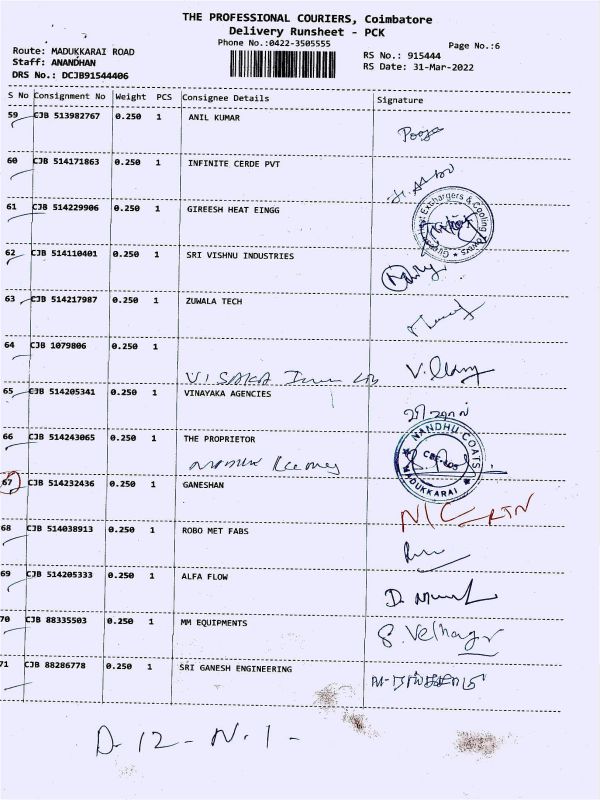 THE PROFESSIONAL COURIERS, Coimbatore
Delivery Runsheet - PCK
Phone No.:0422-3505555
Page No.:6
Route: MADUKKARAI ROAD
Staff: ANANDHAN
DRS No.: DCJB91544406
RS No.: 915444
RS Date: 31-Mar-2022
S No Consignment No Weight PCS Consignee Details Signature
59 CJB 513982767 0.250 1 ANIL KUMAR
Pooja
60 CJB 514171863 0.250 1 INFINITE CERDE PVT
61 CJB 514229906 0.250 1 GIREESH HEAT EINGG
Exchangers & Cooling
62 CJB 514110401 0.250 1 SRI VISHNU INDUSTRIES
63 CJB 514217987 0.250 1 ZUWALA TECH
64 CJB 1079806 0.250 1
VISAKA
65 CJB 514205341 0.250 1 VINAYAKA AGENCIES
66 CJB 514243065 0.250 1 THE PROPRIETOR
NANDHU COATS
MADUKKARAI
67 CJB 514232436 0.250 1 GANESHAN
N/C RTN
68 CJB 514038913 0.250 1 ROBO MET FABS
69 CJB 514205333 0.250 1 ALFA FLOW
70 CJB 88335503 0.250 1 MM EQUIPMENTS
71 CJB 88286778 0.250 1 SRI GANESH ENGINEERING
D-12-N-1-